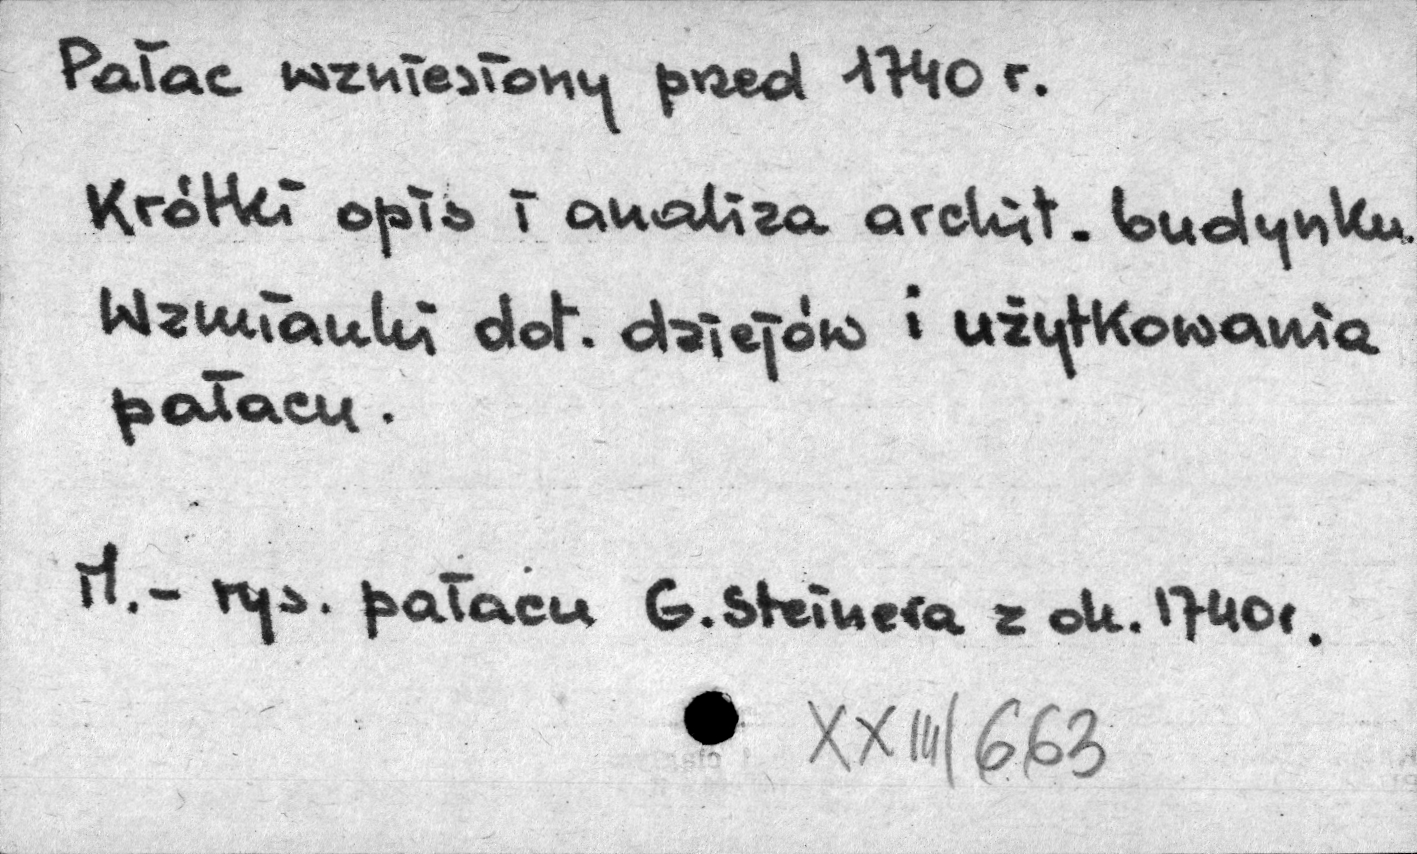 Pałac wzniesiony przed 1740 r.
Krótki opis i analiza archit. budynku.
Wzmianki dot. dziejów i użytkowania
pałacu.
Il. - rys. pałacu G. Steinera z ok. 1740 r.
XXIII/663